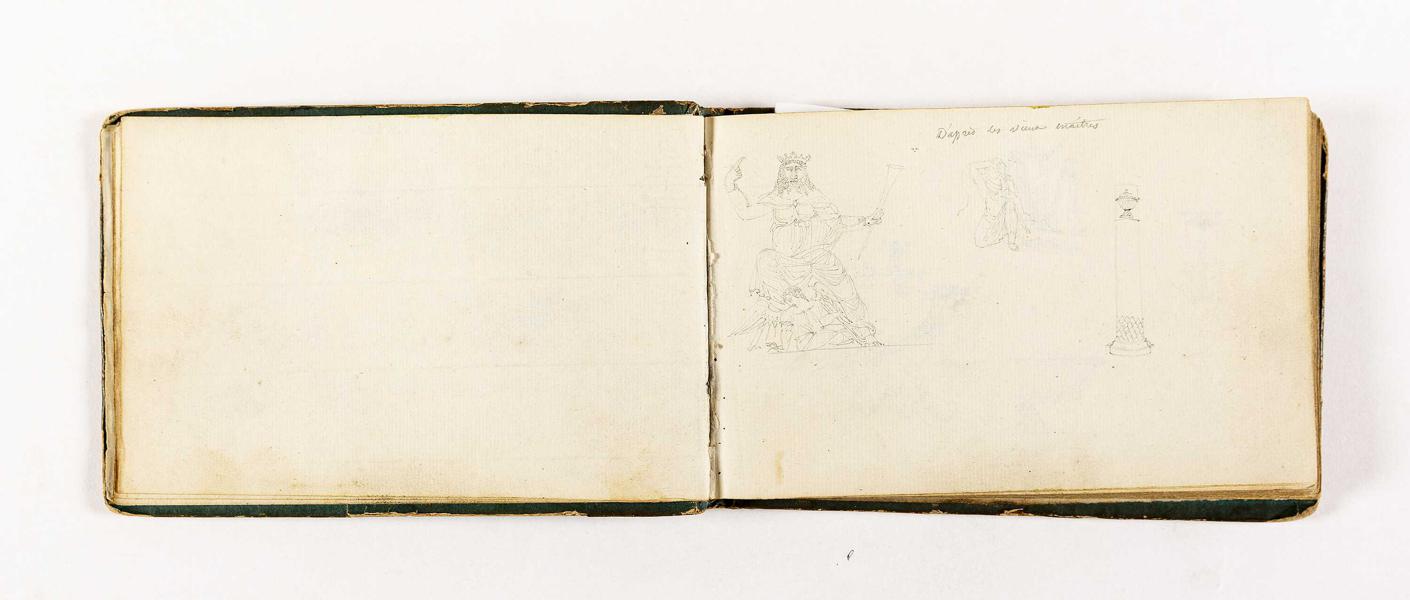 D'après les vieux maîtres